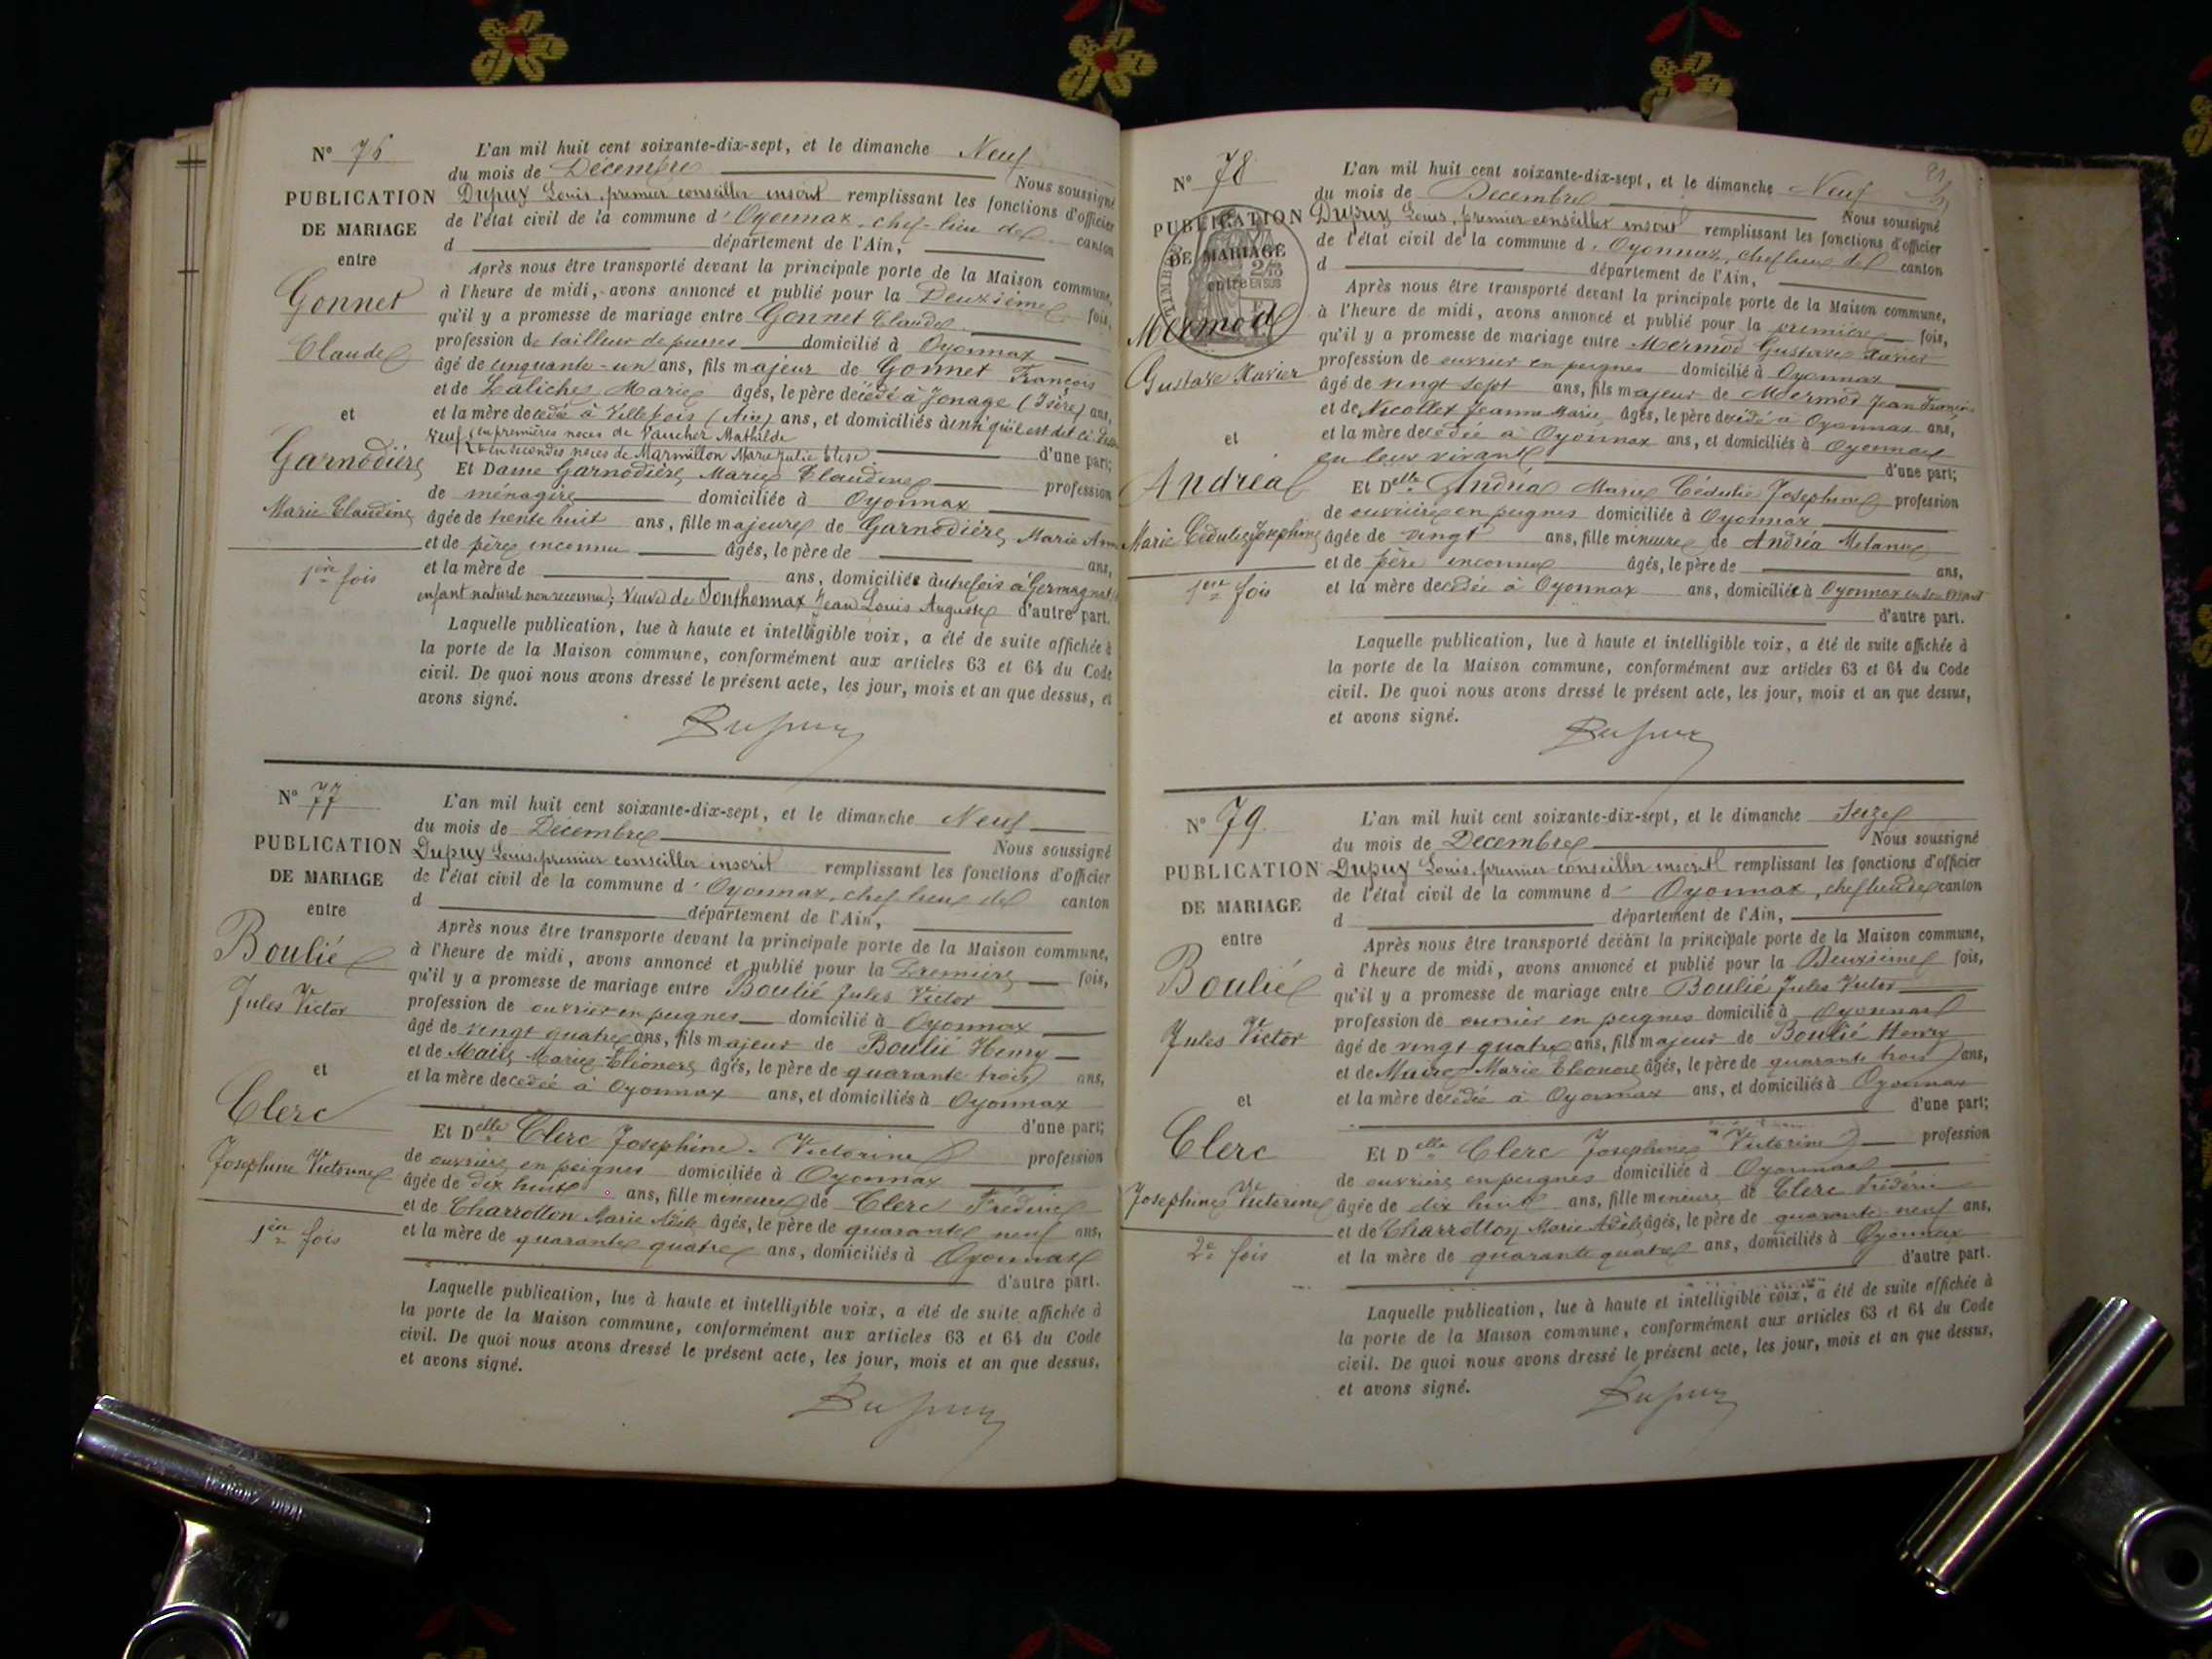 N° 76
PUBLICATION
DE MARIAGE
entre
Gonnet
Claude
et
Garnodière
Marie Claudine
1ère fois
L'an mil huit cent soixante-dix-sept, et le dimanche Neuf
du mois de Décembre Nous soussigné
Dupuy Louis, premier conseiller inscrit remplissant les fonctions d'officier
de l'état civil de la commune d'Oyonnax, chef-lieu de canton
d département de l'Ain,
Après nous être transporté devant la principale porte de la Maison commune,
à l'heure de midi, avons annoncé et publié pour la Deuxième fois,
qu'il y a promesse de mariage entre Gonnet Claude
profession de tailleur de pierres domicilié à Oyonnax
âgé de cinquante-un ans, fils majeur de Gonnet François
et de Laliche Marie âgés, le père décédé à Jonage (Isère) ans,
et la mère décédée à Villebois (Ain) ans, et domiciliés ainsi qu'il est dit ci-dessus
Veuf en premières noces de Vaucher Mathilde
et en secondes noces de Marmillon Marie Julie Elise d'une part;
Et Dame Garnodière Marie Claudine profession
de ménagère domiciliée à Oyonnax
âgée de trente huit ans, fille majeure de Garnodière Marie Anne
et de père inconnu âgés, le père de ans,
et la mère de ans, domiciliés autrefois à Germagnat
enfant naturel non reconnu; veuve de Jean Louis Auguste d'autre part.
Laquelle publication, lue à haute et intelligible voix, a été de suite affichée à
la porte de la Maison commune, conformément aux articles 63 et 64 du Code
civil. De quoi nous avons dressé le présent acte, les jour, mois et an que dessus, et
avons signé.
Dupuy
N° 77
PUBLICATION
DE MARIAGE
entre
Boulié
Jules Victor
et
Clerc
Josephine Victorine
1ère fois
L'an mil huit cent soixante-dix-sept, et le dimanche Neuf
du mois de Décembre Nous soussigné
Dupuy Louis, premier conseiller inscrit remplissant les fonctions d'officier
de l'état civil de la commune d'Oyonnax, chef lieu de canton
d département de l'Ain,
Après nous être transporté devant la principale porte de la Maison commune,
à l'heure de midi, avons annoncé et publié pour la Première fois,
qu'il y a promesse de mariage entre Boulié Jules Victor
profession de ouvrier en peignes domicilié à Oyonnax
âgé de vingt quatre ans, fils majeur de Boulié Henry
et de Maire Marie Eléonore âgés, le père de quarante trois ans,
et la mère décédée à Oyonnax ans, et domiciliés à Oyonnax
d'une part;
Et Delle Clerc Josephine Victorine profession
de ouvrière en peignes domiciliée à Oyonnax
âgée de dix huit ans, fille mineure de Clerc Frédéric
et de Charrotton Marie Adèle âgés, le père de quarante neuf ans,
et la mère de quarante quatre ans, domiciliés à Oyonnax
d'autre part.
Laquelle publication, lue à haute et intelligible voix, a été de suite affichée à
la porte de la Maison commune, conformément aux articles 63 et 64 du Code
civil. De quoi nous avons dressé le présent acte, les jour, mois et an que dessus,
et avons signé.
Dupuy
N° 78
PUBLICATION
DE MARIAGE
entre
TIMBRE
2/10
EN SUS
Mermod
Gustave Xavier
et
Andréa
Marie Cédulie Josephine
1ère fois
L'an mil huit cent soixante-dix-sept, et le dimanche Neuf
du mois de Décembre Nous soussigné
Dupuy Louis, premier conseiller inscrit remplissant les fonctions d'officier
de l'état civil de la commune d'Oyonnax, chef lieu de canton
d département de l'Ain,
Après nous être transporté devant la principale porte de la Maison commune,
à l'heure de midi, avons annoncé et publié pour la première fois,
qu'il y a promesse de mariage entre Mermod Gustave Xavier
profession de ouvrier en peignes domicilié à Oyonnax
âgé de vingt sept ans, fils majeur de Mermod Jean François
et de Nicollet Jeanne Marie âgés, le père décédé à Oyonnax ans,
et la mère décédée à Oyonnax ans, et domiciliés à Oyonnax
en leur vivant d'une part;
Et Delle Andréa Marie Cédulie Josephine profession
de ouvrière en peignes domiciliée à Oyonnax
âgée de vingt ans, fille mineure de Andréa Melanie
et de père inconnu âgés, le père de ans,
et la mère décédée à Oyonnax ans, domiciliée à Oyonnax en son vivant
d'autre part.
Laquelle publication, lue à haute et intelligible voix, a été de suite affichée à
la porte de la Maison commune, conformément aux articles 63 et 64 du Code
civil. De quoi nous avons dressé le présent acte, les jour, mois et an que dessus,
et avons signé.
Dupuy
N° 79
PUBLICATION
DE MARIAGE
entre
Boulié
Jules Victor
et
Clerc
Josephine Victorine
2e fois
L'an mil huit cent soixante-dix-sept, et le dimanche Seize
du mois de Décembre Nous soussigné
Dupuy Louis, premier conseiller inscrit remplissant les fonctions d'officier
de l'état civil de la commune d'Oyonnax, chef lieu de canton
d département de l'Ain,
Après nous être transporté devant la principale porte de la Maison commune,
à l'heure de midi, avons annoncé et publié pour la Deuxième fois,
qu'il y a promesse de mariage entre Boulié Jules Victor
profession de ouvrier en peignes domicilié à Oyonnax
âgé de vingt quatre ans, fils majeur de Boulié Henry
et de Maire Marie Eléonore âgés, le père de quarante trois ans,
et la mère décédée à Oyonnax ans, et domiciliés à Oyonnax
d'une part;
Et Delle Clerc Josephine Victorine profession
de ouvrière en peignes domiciliée à Oyonnax
âgée de dix huit ans, fille mineure de Clerc Frédéric
et de Charrotton Marie Adèle âgés, le père de quarante neuf ans,
et la mère de quarante quatre ans, domiciliés à Oyonnax
d'autre part.
Laquelle publication, lue à haute et intelligible voix, a été de suite affichée à
la porte de la Maison commune, conformément aux articles 63 et 64 du Code
civil. De quoi nous avons dressé le présent acte, les jour, mois et an que dessus,
et avons signé.
Dupuy